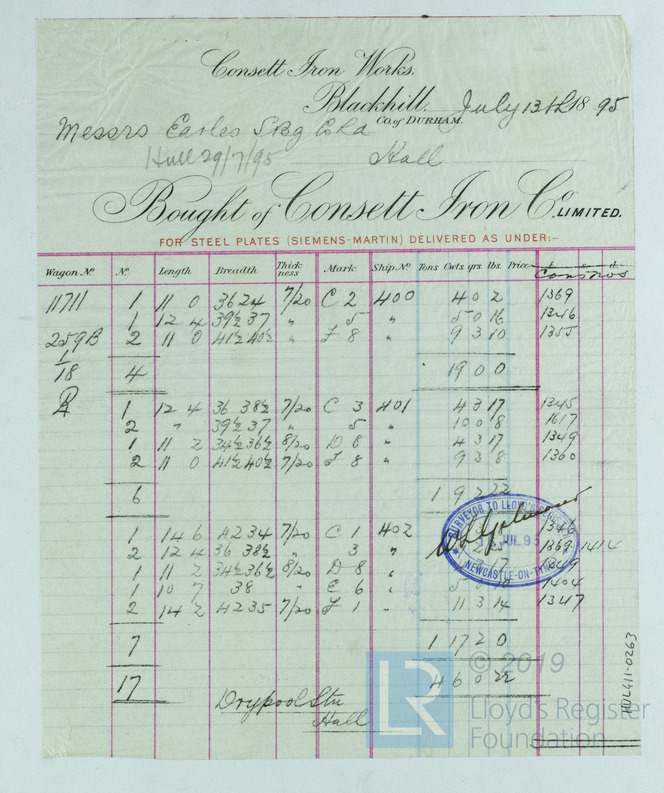 Consett Iron Works.
Blackhill. July 13th 1895
Co. of DURHAM.
Messrs Earles SBg Co Ld
Hull 29/7/95 Hull
Bought of Consett Iron Co. LIMITED.
FOR STEEL PLATES (SIEMENS-MARTIN) DELIVERED AS UNDER:—
Wagon No. No. Length Breadth Thickness Mark Ship No. Tons Cwts. qrs. lbs. Price £ s d
11711 1 11 0 36 24 7/20 C 2 400 4 0 2 1369
1 12 4 39½ 37 " 5 " 5 0 16 1346
259B 2 11 0 41½ 40½ " F 8 " 9 3 10 1355
1/18 4 19 0 0
1 12 4 36 38½ 7/20 C 3 401 4 3 17 1345
2 " 39½ 37 " 5 " 10 0 8 1617
1 11 2 34½ 36½ 8/20 D 8 " 4 3 17 1349
2 11 0 41½ 40½ 7/20 F 8 " 9 3 8 1360
6 1 9 2 22
1 14 6 42 34 7/20 C 1 402 1346
2 12 4 36 38½ 3 " 1369 1414
1 11 2 34½ 36½ 8/20 D 8 " 1349
1 10 7 38 " E 6 " 1404
2 14 2 42 35 7/20 F 1 " 11 3 14 1347
SURVEYOR TO LLOYD'S REGISTER
JUL 95
NEWCASTLE-ON-TYNE
7 1 17 2 0
17 4 6 0 22
Drypool Stn
Hull
HUL411-0263
LR
© 2019
Lloyd's Register
Foundation